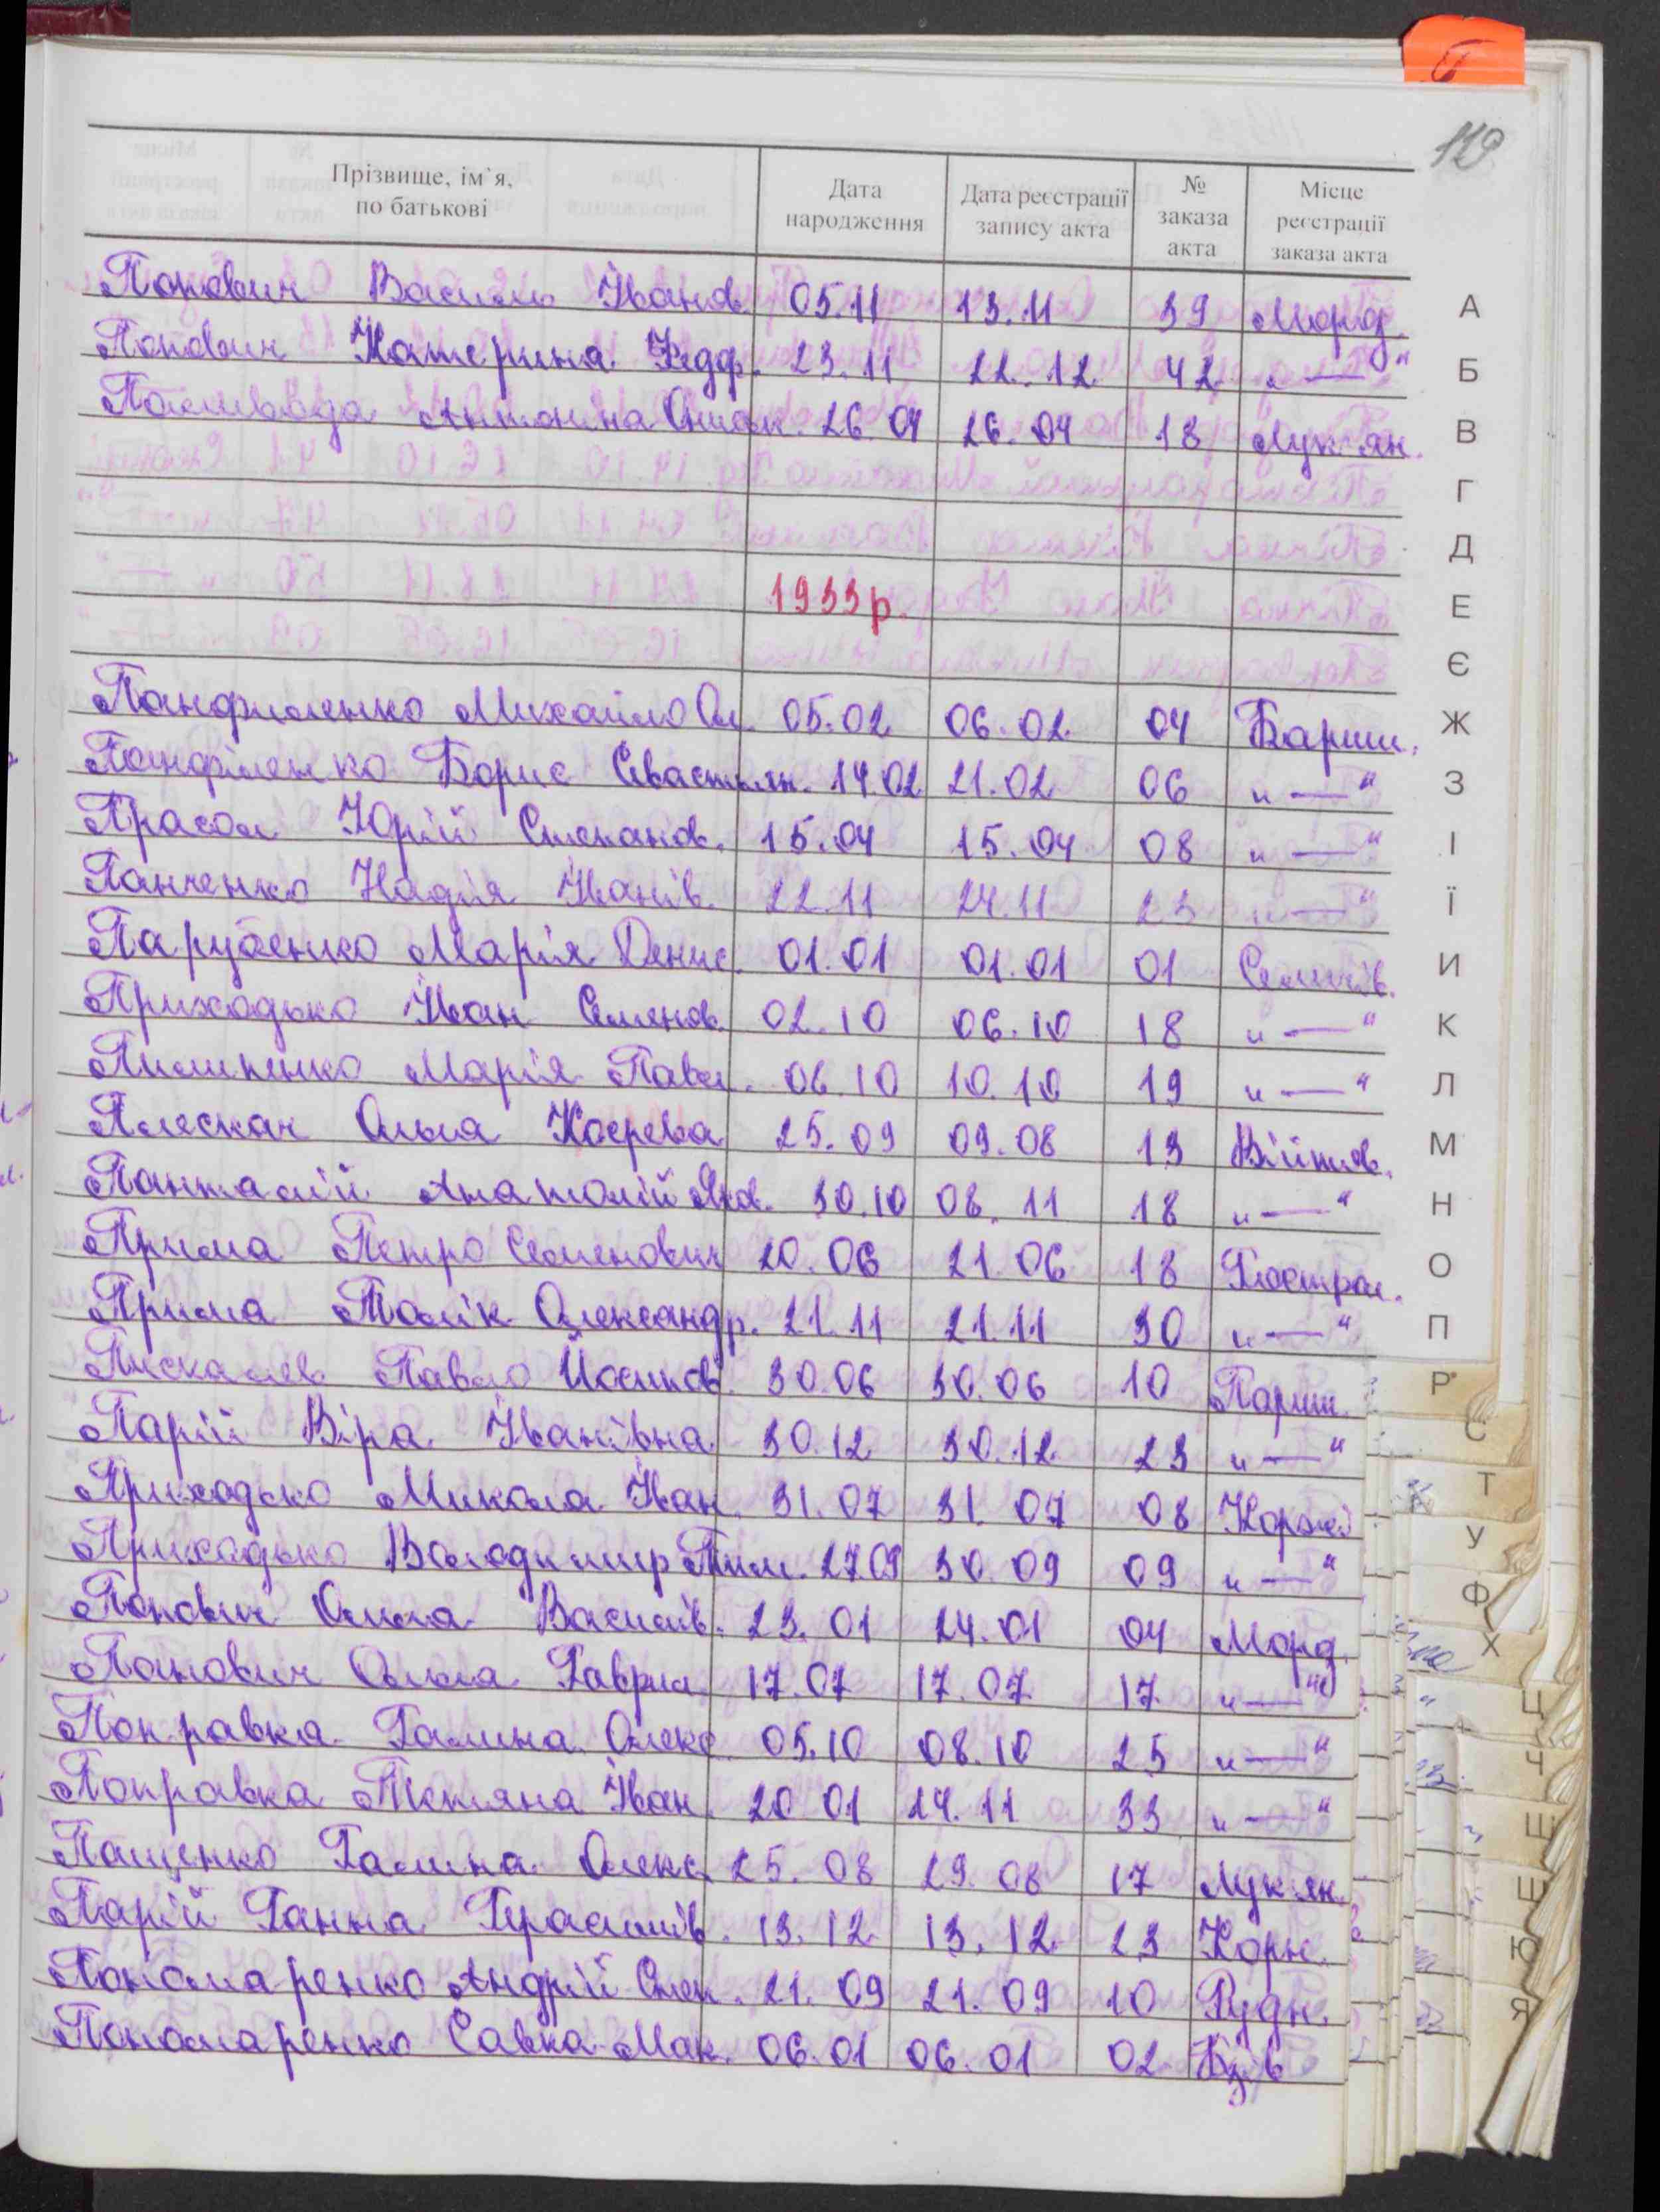 119
Прізвище, ім`я, по батькові | Дата народження | Дата реєстрації запису акта | № заказа акта | Місце реєстрації заказа акта
Попович Василь Іванов. 05.11 13.11 39 Морд.
Попович Катерина Федф. 23.11 22.12 42 "—"
Паливода Антоніна Онисик. 26.04 26.04 18 Лук'ян.
1933р.
Панфиленко Михайло Ол. 05.02 06.02 04 Бариш.
Панфіленко Борис Севастьян. 14.02 21.02 06 "—"
Прасол Юрій Степанов. 15.04 15.04 08 "—"
Панченко Надія Іванів. 22.11 24.11 23 "—"
Парубенко Марія Денис. 01.01 01.01 01 Селичів.
Приходько Іван Семенов. 02.10 06.10 18 "—"
Пилипенко Марія Павл. 06.10 10.10 19 "—"
Плескач Ольга 25.09 09.08 13 Війтов.
Панталій Анатолій Яков. 30.10 08.11 18 "—"
Прима Петро Семенович 20.06 21.06 18
Прима Толік Олександр. 21.11 21.11 30 "—"
Пискалев Павло Йосипов. 30.06 30.06 10 Париш.
Парій Віра Іванівна 30.12 30.12 23 "—"
Приходько Микола Іван. 31.07 31.07 08 Коржі
Приходько Володимир Пил. 27.09 30.09 09 "—"
Попович Ольга Василів. 23.01 24.01 04 Морд.
Папович Ольга Гаврил. 17.07 17.07 17 "—"
Поправка Галина Олекс. 05.10 08.10 25 "—"
Поправка Тетяна Іван. 20.01 24.11 33 "—"
Пащенко Галина Олекс. 25.08 29.08 17 Лук'ян.
Парій Ганна Герасимів. 13.12 13.12 23 Корн.
Пономаренко Андрій Олек. 21.09 21.09 10 Рудн.
Пономаренко Савка Мак. 06.01 06.01 02 Бзів
А
Б
В
Г
Д
Е
Є
Ж
З
І
Ї
И
К
Л
М
Н
О
П
Р
С
Т
У
Ф
Х
Ц
Ч
Ш
Щ
Ю
Я